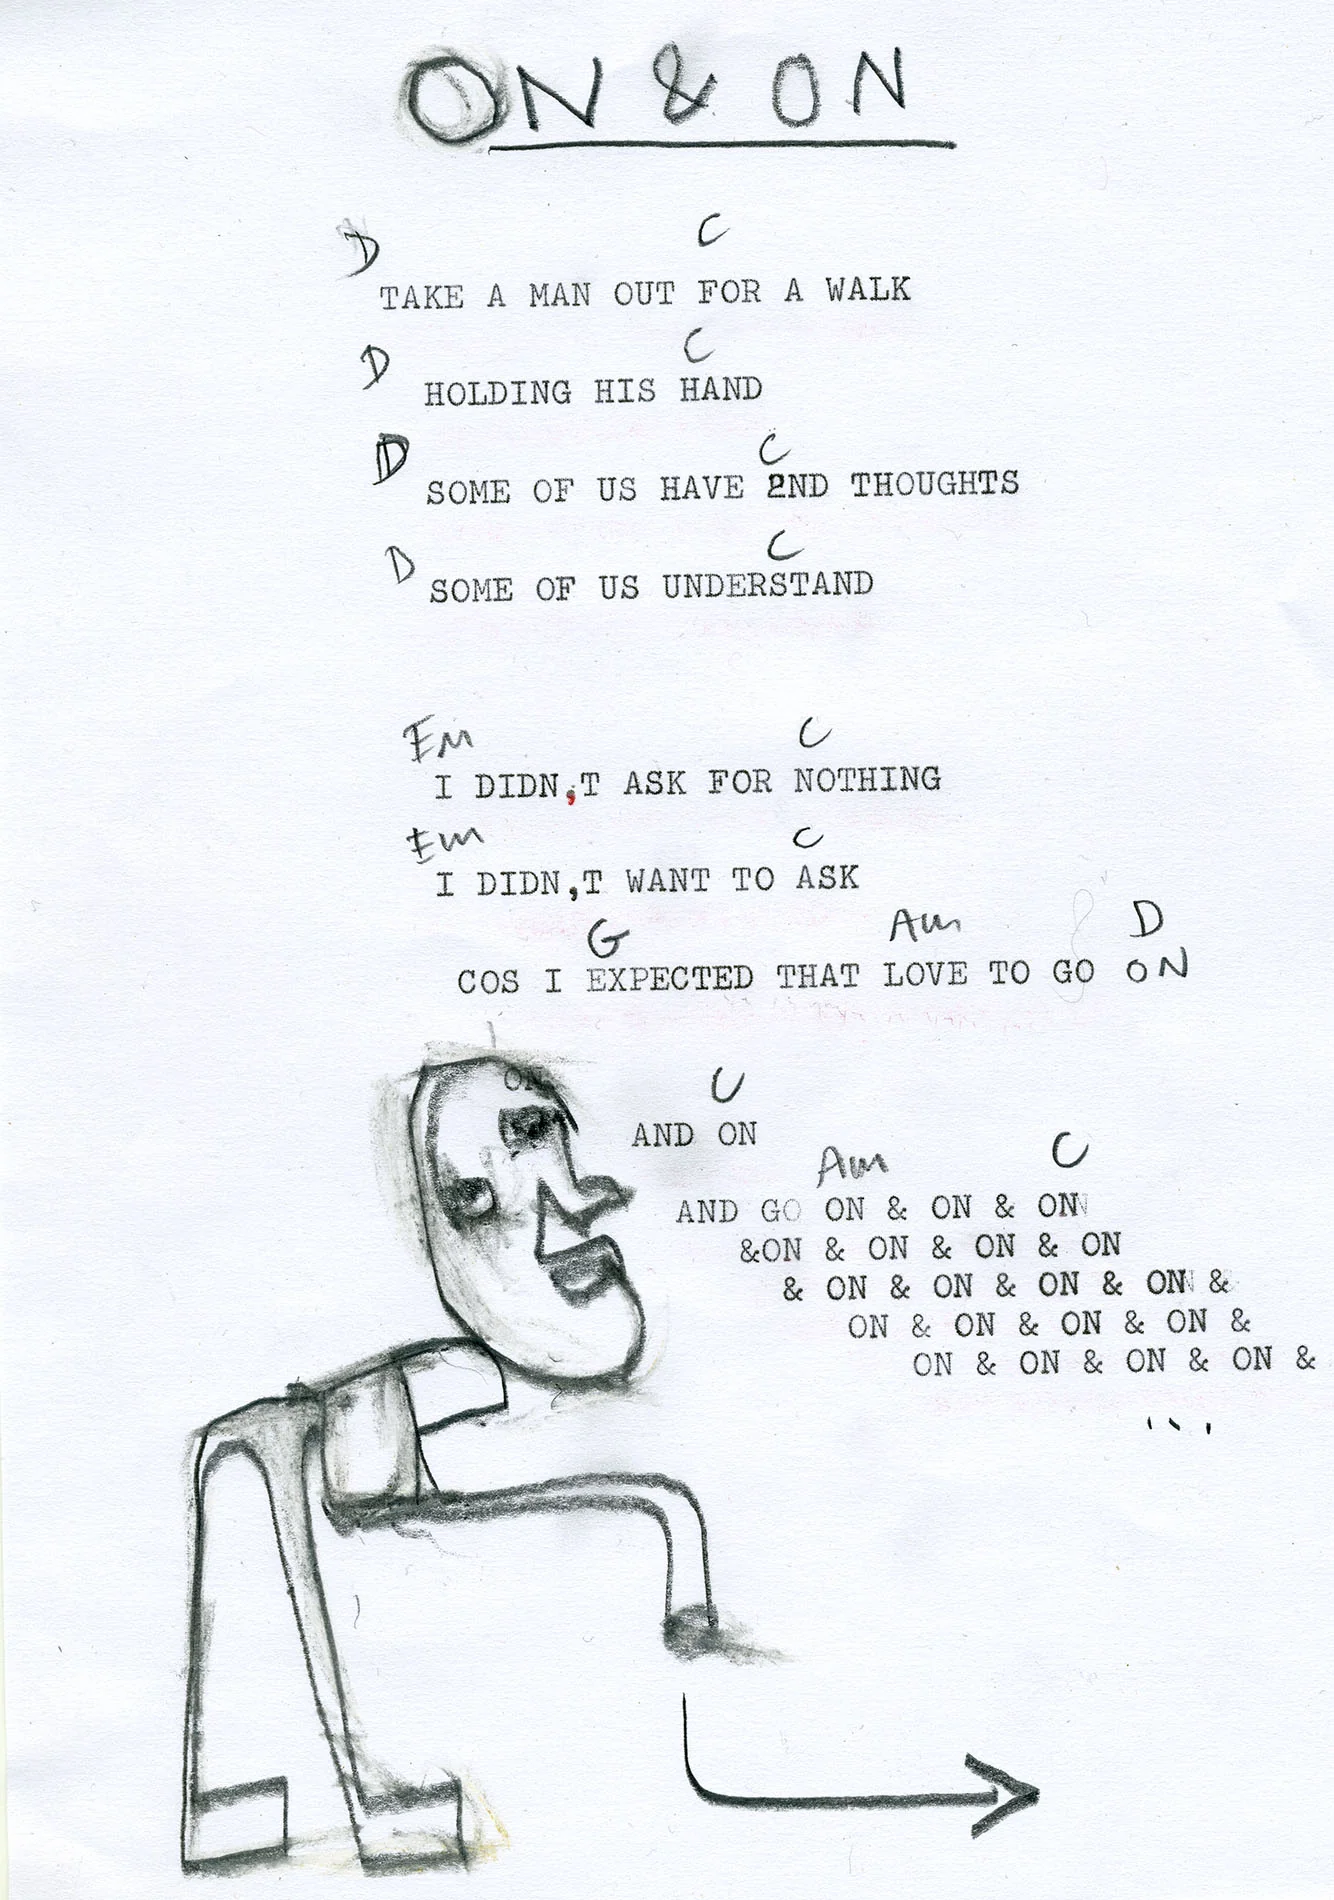 ON & ON
D C
TAKE A MAN OUT FOR A WALK
D C
HOLDING HIS HAND
D C
SOME OF US HAVE 2ND THOUGHTS
D C
SOME OF US UNDERSTAND
Em C
I DIDN,T ASK FOR NOTHING
Em C
I DIDN,T WANT TO ASK
G Am D
COS I EXPECTED THAT LOVE TO GO ON
ON
C
AND ON
Am C
AND GO ON & ON & ON
&ON & ON & ON & ON
& ON & ON & ON & ON &
ON & ON & ON & ON &
ON & ON & ON & ON &
...